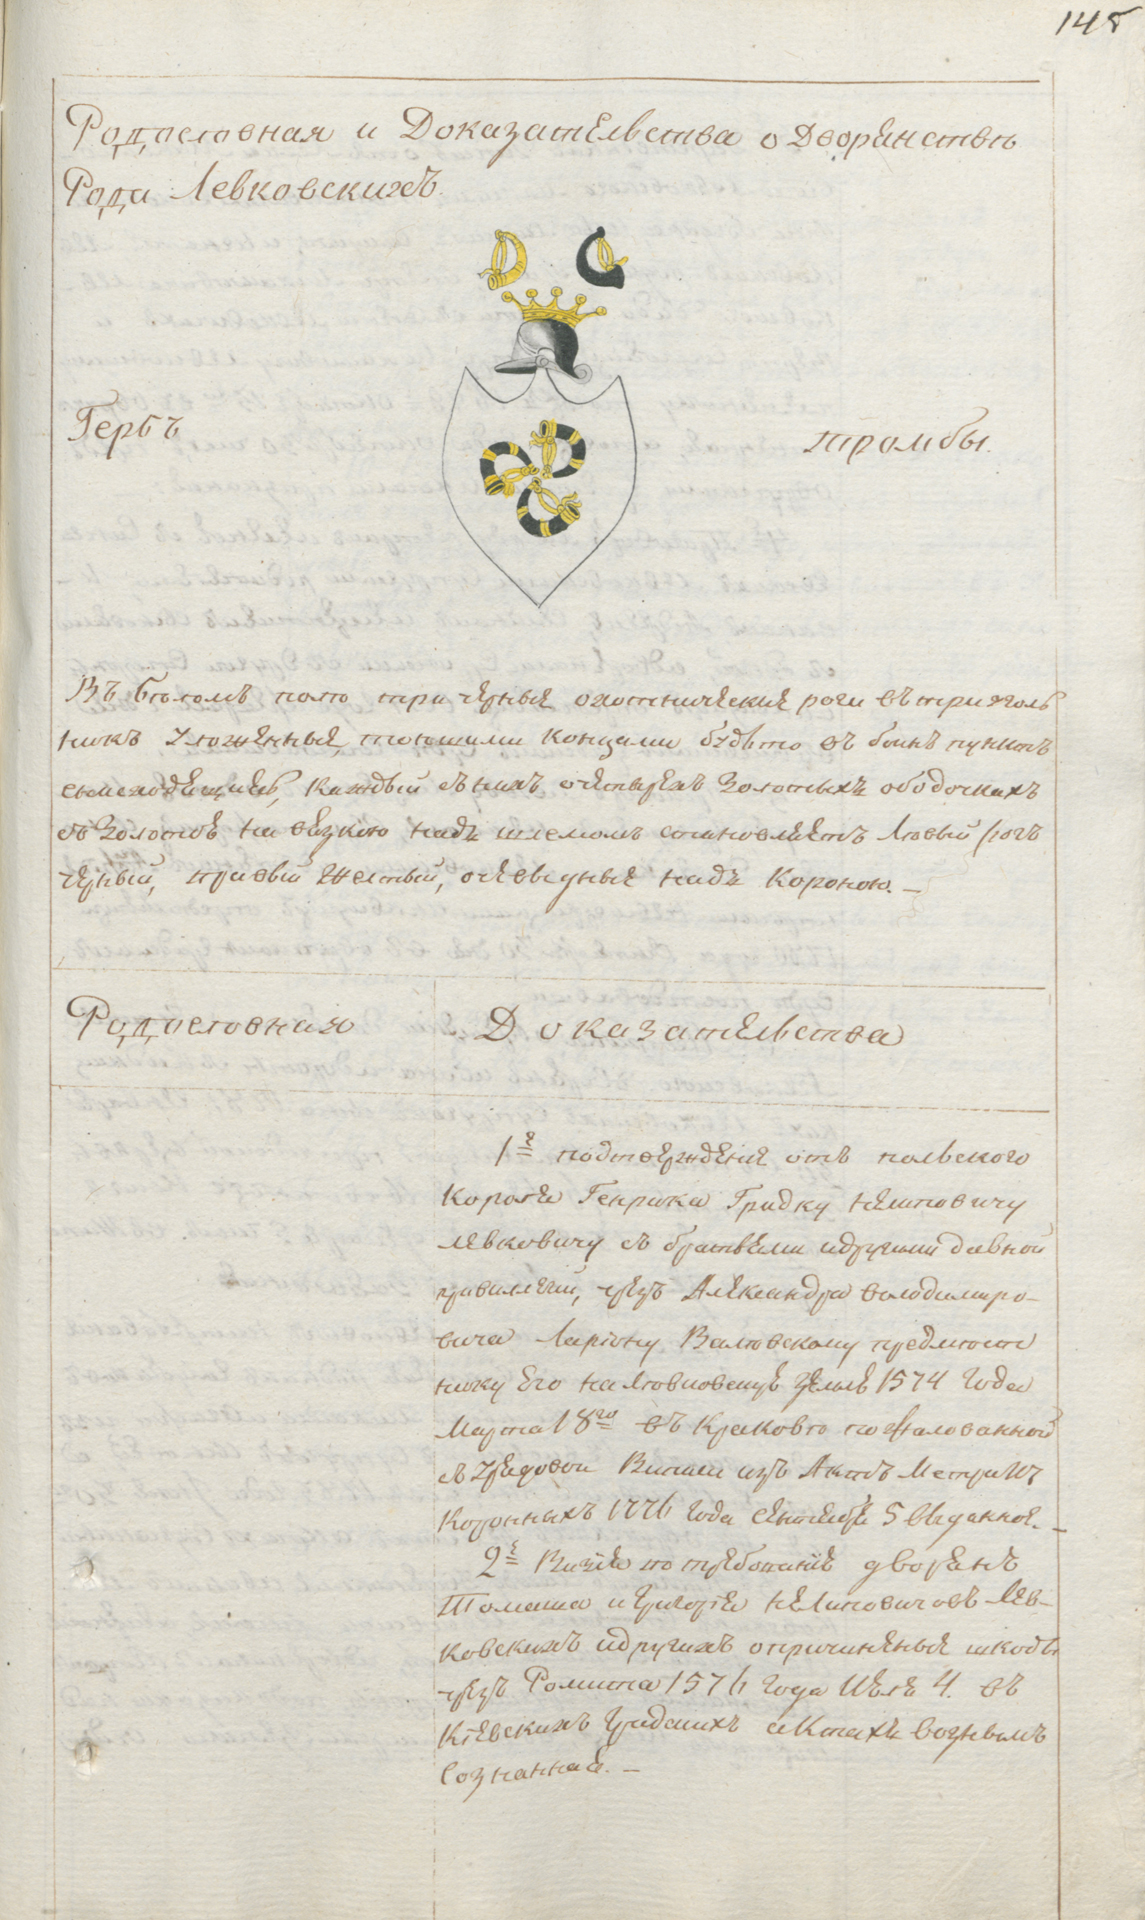 148
Родословная и Доказательства о Дворянстве
Рода Левковскихъ.
Гербъ
тромбы.
Въ беломъ поле три черные охотнические роги въ триуголь
никъ уложенные, тоншими концами будьто въ одинъ пунктъ
каждый съ нихъ очетырехъ золотыхъ ободочкахъ
надъ шлемомъ становляетъ Левый рогъ
черный, правый желтый, надъ Короною. —
Родословная
Доказательства
1е подтверждение отъ польского
Короля Генрика Гридку Нелиповичу
левковичу съ братьями идругими давной
привиллегий, чрезъ Александра володимиро-
вича Лариону Валювскому предместн
нику Его на 1574 Года
Марта 18го въ Кракове пожалованной
съ Урядовой Выписи изъ Актъ Метрикъ
Коронныхъ 1776 Года 5 выданное. —
2е Визия по требованию дворянъ
Томаша и Григория Нелиповичовъ Лев-
ковскихъ идругихъ опричиненые шкоды
чрезъ 1576 Года Июля 4. въ
Кіевскихъ Гридскихъ актахъ вознымъ
Сознанная. —